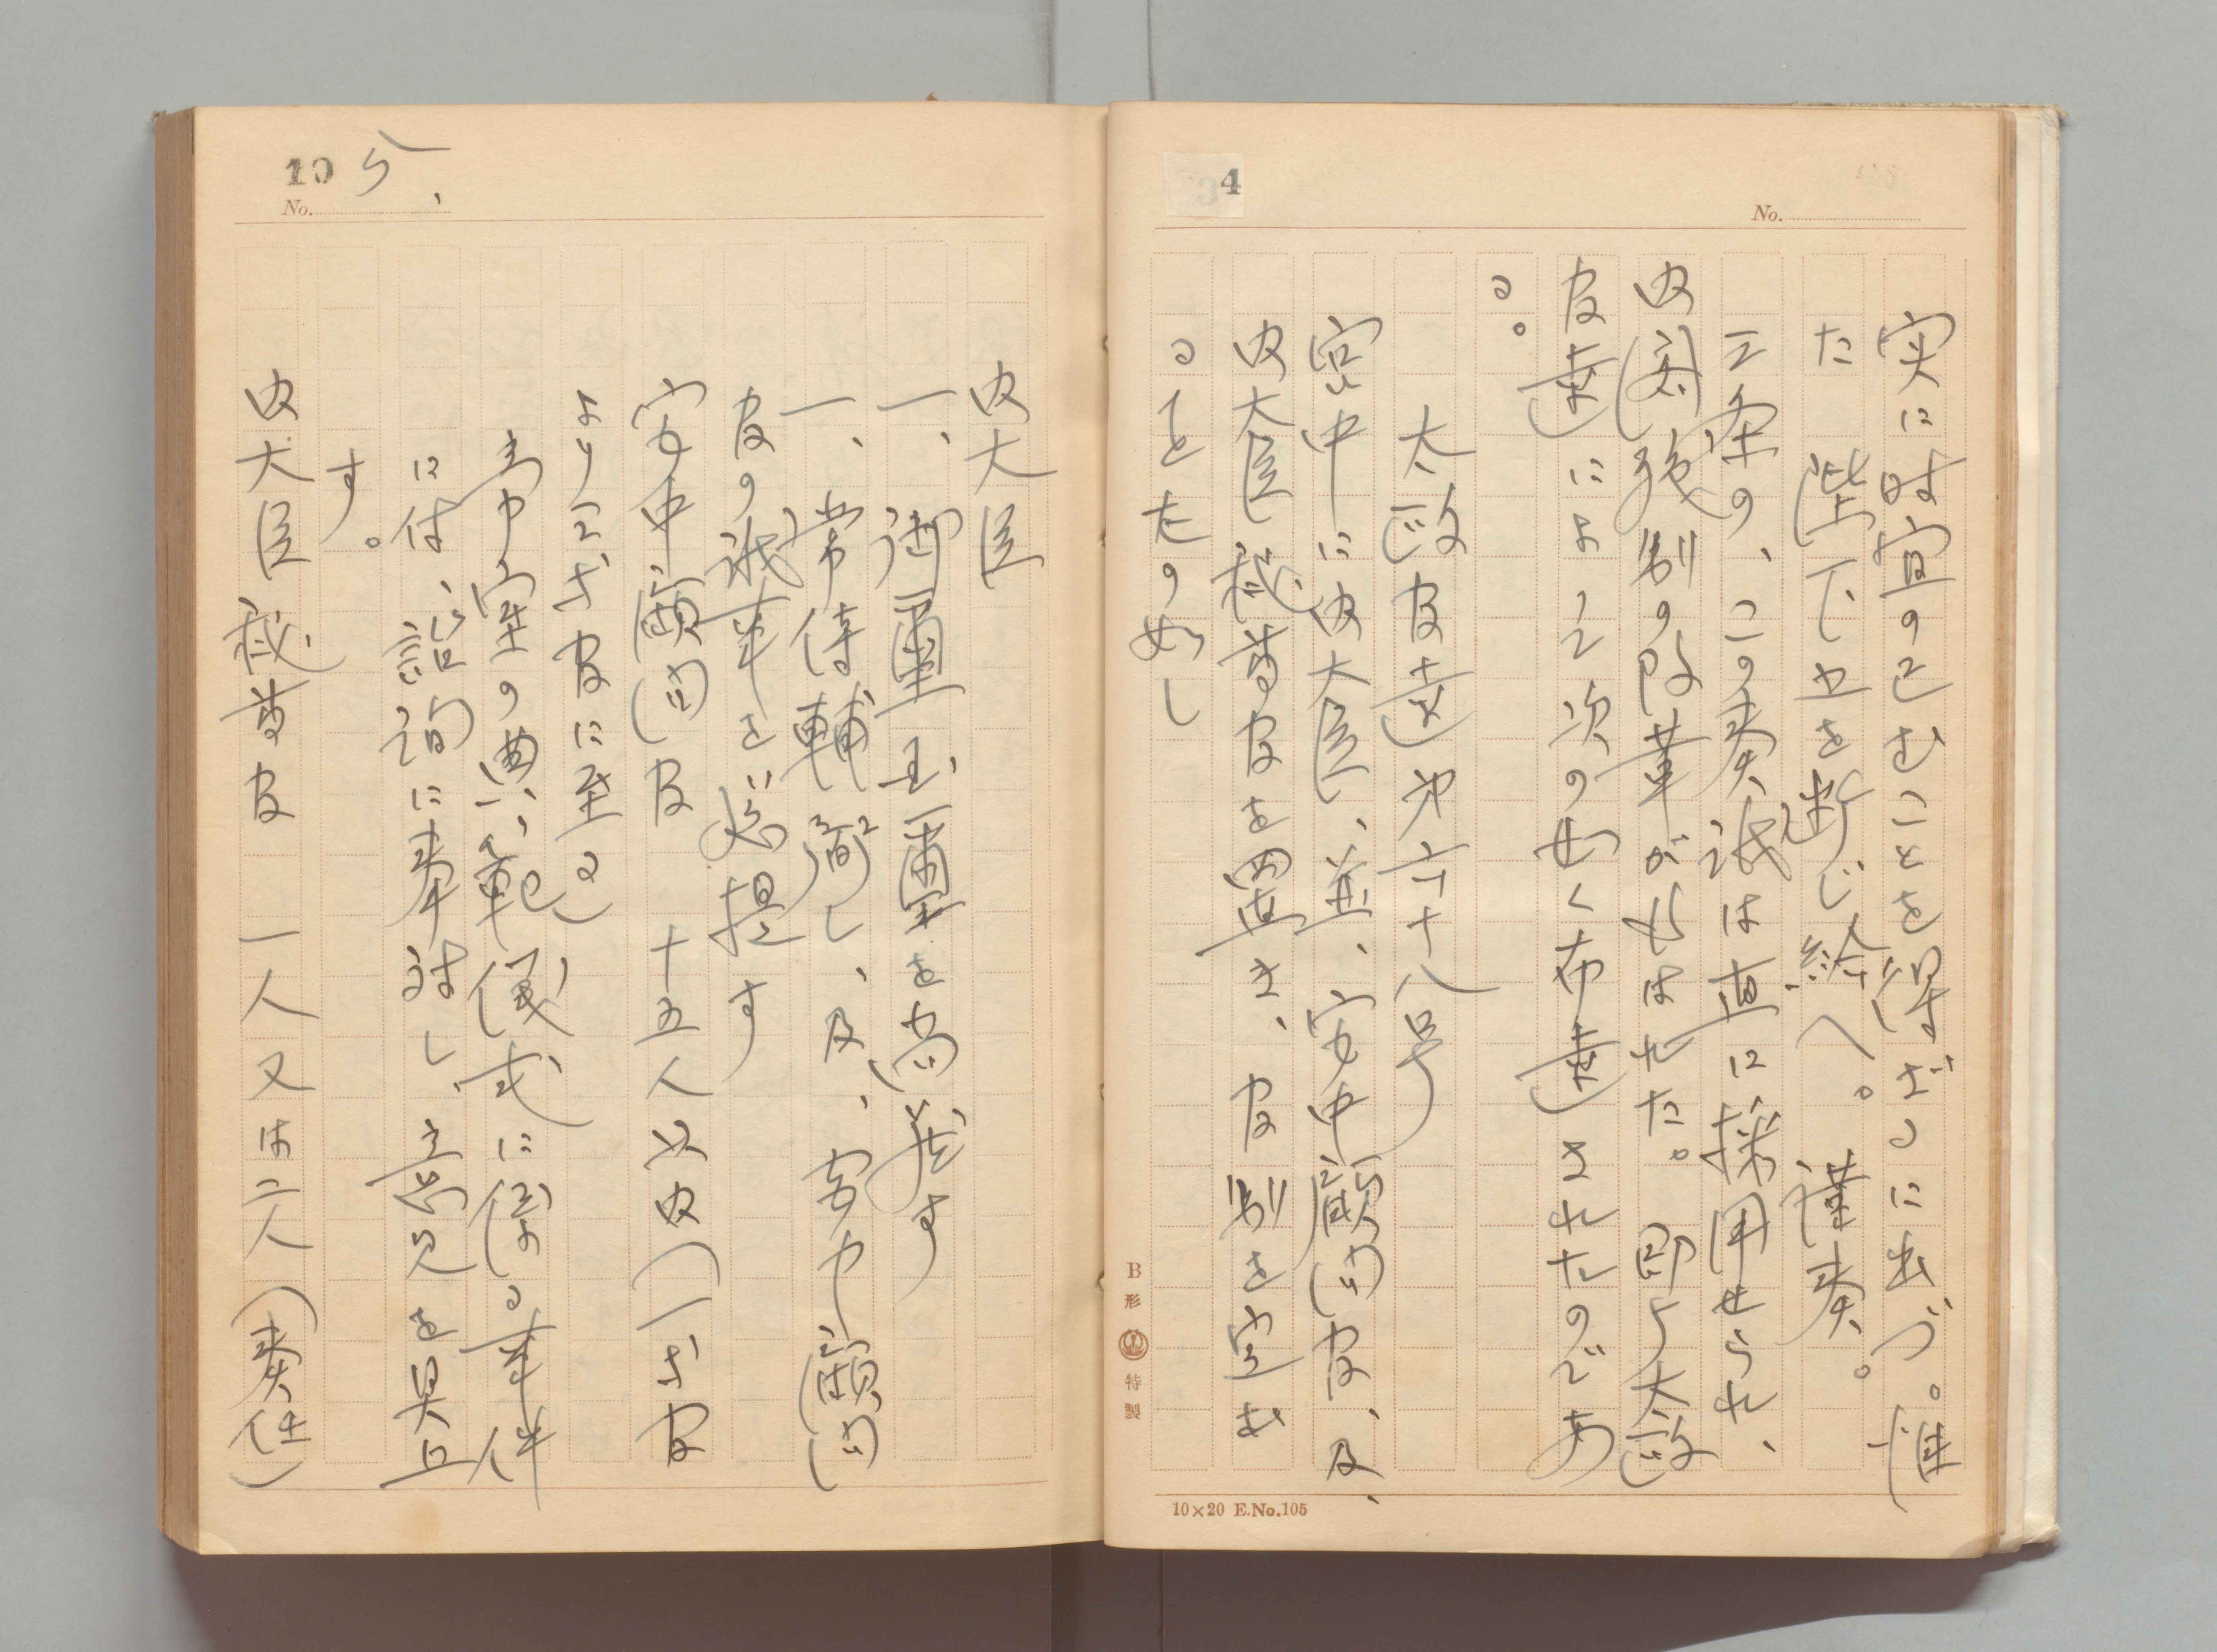 4
No.
実に時宜の已むことを得ざるに出づ。惟
た 陛下之を断じ給へ。謹奏。
三条の、この奏議は直に採用せられ、
内閣強制の改革が行はれた。即ち太政
官達によつて次の如く布達されたのであ
る。
太政官達第六十八号
宮中に内大臣、並、宮中顧問官、及、
内大臣秘書官を置き、官制を定む
ること左の如し
B形 特製
10×20 E.No.105
10
5
No.
内大臣
一、御璽国璽を尚蔵す
一、常侍輔弼し、及、宮中顧問
官の議事を総提す
宮中顧問官 十五人以内(一等官
より二等官に至る)
帝室の典範儀式に係る事件
に付、諮詢に奉対し、意見を具上
す。
内大臣秘書官 一人又は二人(奏任)